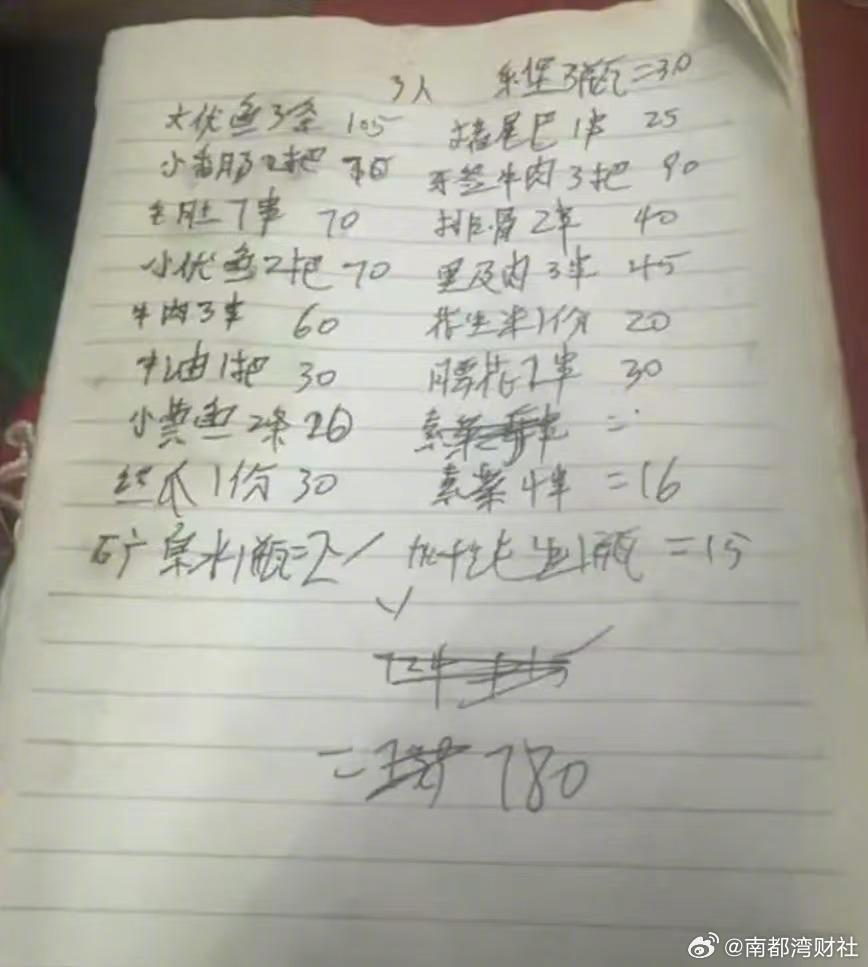 3人 乐堡3瓶=30
大优鱼3条 105 猪尾巴1串 25
小香肠2把 牙签牛肉3把 90
毛肚7串 70 排骨2串 40
小优鱼2把 70 里及肉3串 45
牛肉3串 60 花生米1份 20
牛油1把 30 腰花2串 30
小黄鱼2条 26 素菜 =
丝瓜1份 30 素菜4串 =16
矿泉水1瓶=2 1瓶 =15
= 780
@南都湾财社